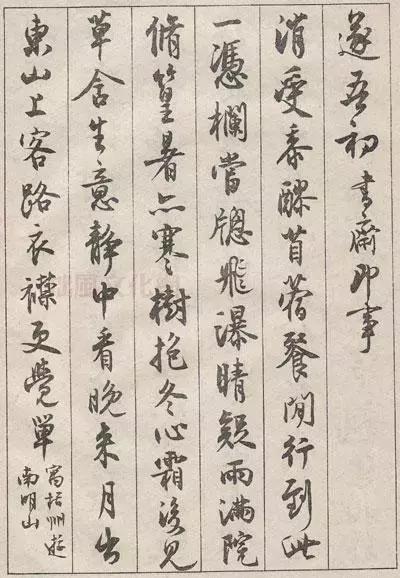 遂吾初書齋即事
消受黍醪苜蓿餐閒行到此
一憑欄當牕飛瀑晴疑雨滿院
脩篁暑亦寒樹抱冬心霜後見
草含生意靜中看晚來月出
東山上客路衣襟更覺單
寓括州遊
南明山